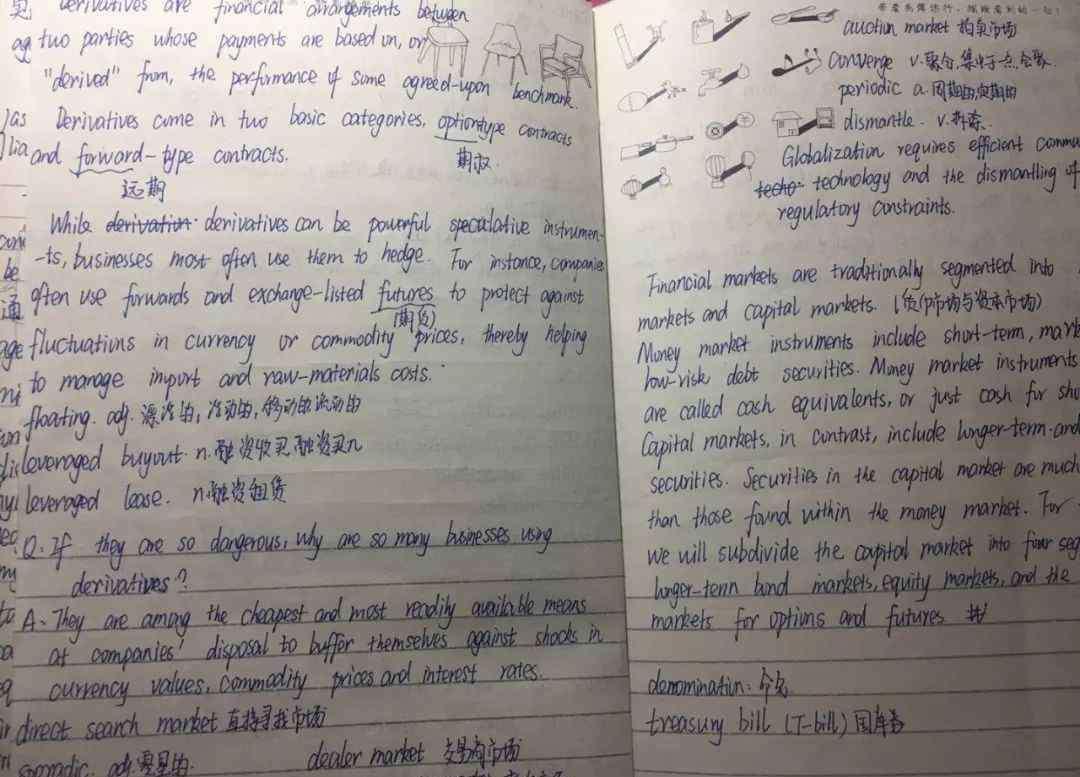 derivatives are financial arrangements between
two parties whose payments are based on, or
"derived" from, the performance of some agreed-upon benchmark.
Derivatives come in two basic categories, optiontype contracts
期权
and forward-type contracts.
远期
While derivation derivatives can be powerful speculative instrumen-
-ts, businesses most often use them to hedge. For instance, companies
often use forwards and exchange-listed futures to protect against
(期货)
fluctuations in currency or commodity prices, thereby helping
to manage import and raw-materials costs.
floating. adj. 漂浮的, 浮动的, 移动的流动的
leveraged buyout. n. 融资收买 融资买入
leveraged lease. n. 融资租赁
Q. If they are so dangerous, why are so many businesses using
derivatives?
A. They are among the cheapest and most readily available means
at companies' disposal to buffer themselves against shocks in
currency values, commodity prices and interest rates.
direct search market 直接寻找市场
sporadic. adj. 零星的
dealer market 交易商市场
auction market 拍卖市场
converge v. 聚合, 集中于一点, 会聚
periodic a. 周期的, 定期的
dismantle. v. 拆除.
Globalization requires efficient commu
techo technology and the dismantling of
regulatory constraints.
Financial markets are traditionally segmented into
markets and capital markets. (货币市场与资本市场)
Money market instruments include short-term, mark
low-risk debt securities. Money market instruments
are called cash equivalents, or just cash for sho
Capital markets, in contrast, include longer-term and
securities. Securities in the capital market are much
than those found within the money market. For
we will subdivide the capital market into four seg
longer-term bond markets, equity markets, and the
markets for options and futures
denomination:
treasury bill (T-bill) 国库券